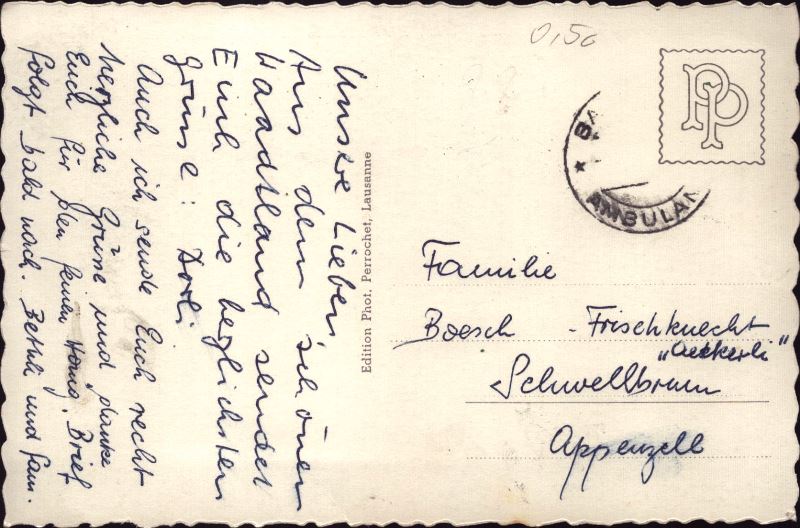 Unsere Lieben,
Aus dem schönen
Waadtland sendet
Euch die herzlichsten
Grüsse: Dorli
Auch ich sende Euch recht
herzliche Grüsse und danke
Euch für den feinen Honig. Brief
folgt bald nach. Bethli und Fam.
Edition Phot. Perrochet, Lausanne
0,50
PP
AMBULAN
Familie
Boesch - Frischknecht
"Aeckerli"
Schwellbrunn
Appenzell